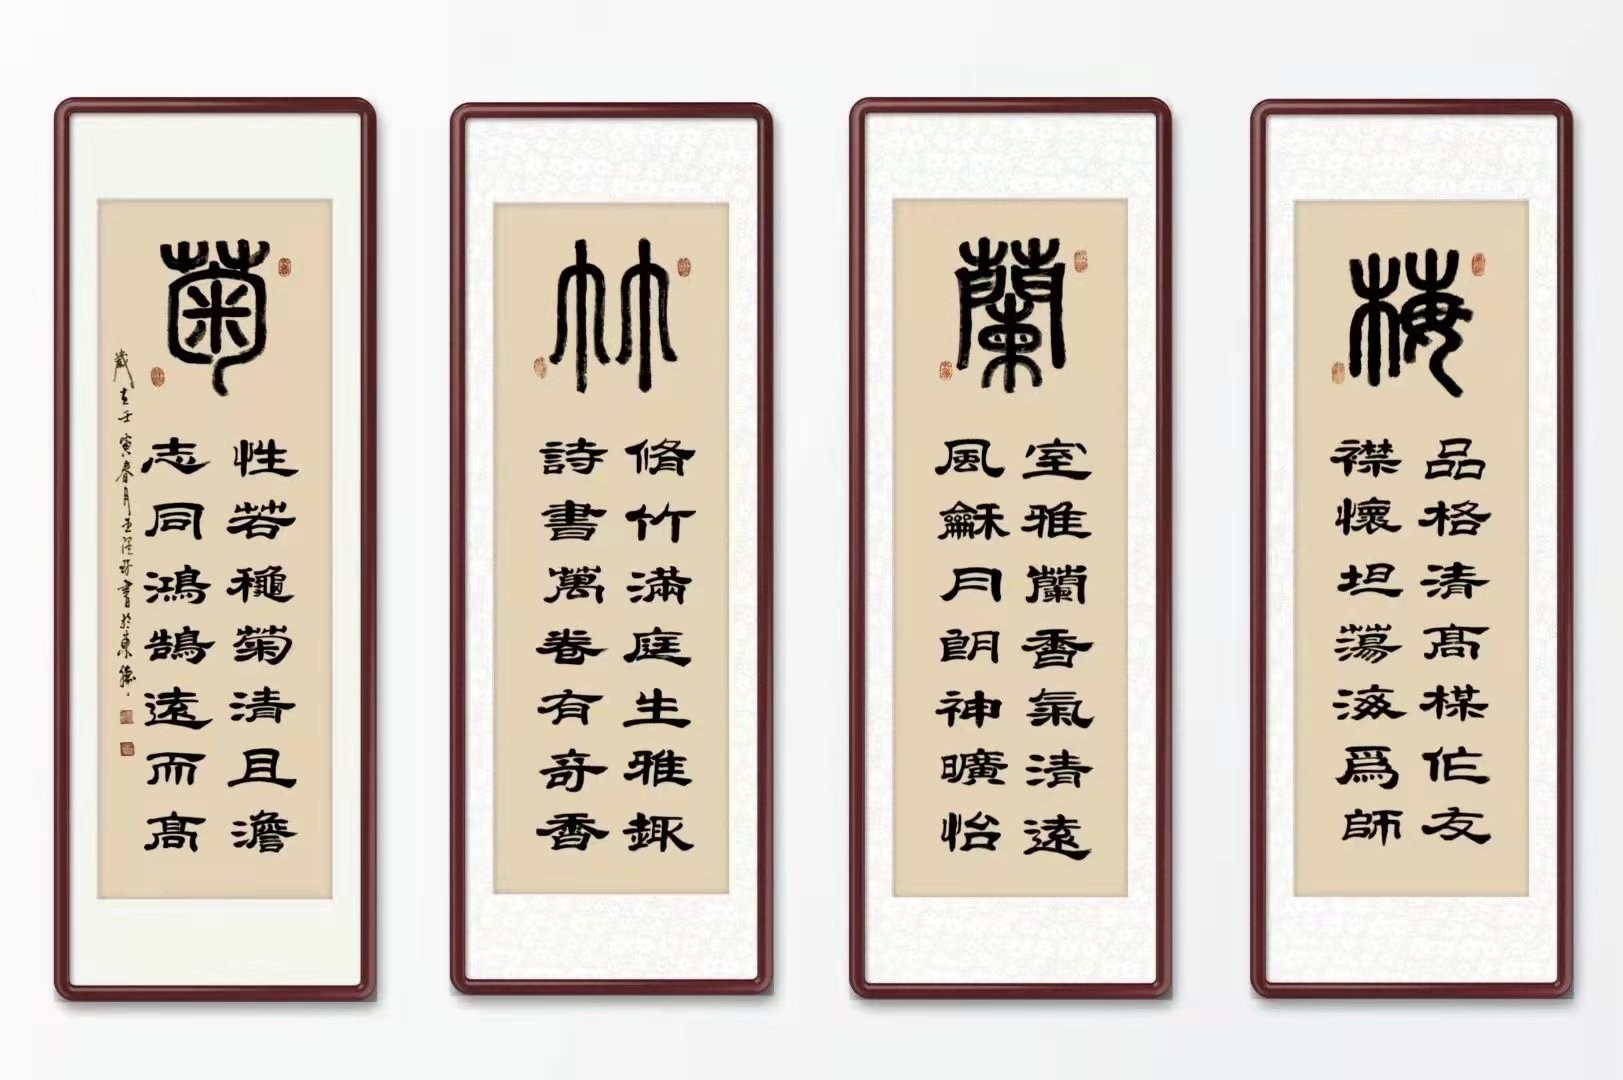 梅
品格清高楳作友
襟懷坦蕩海爲師
蘭
室雅蘭香氣清遠
風龢月朗神曠怡
竹
脩竹滿庭生雅趣
詩書萬卷有奇香
菊
性若穐菊清且澹
志同鴻鵠遠而高
歲在壬寅春月
書於東